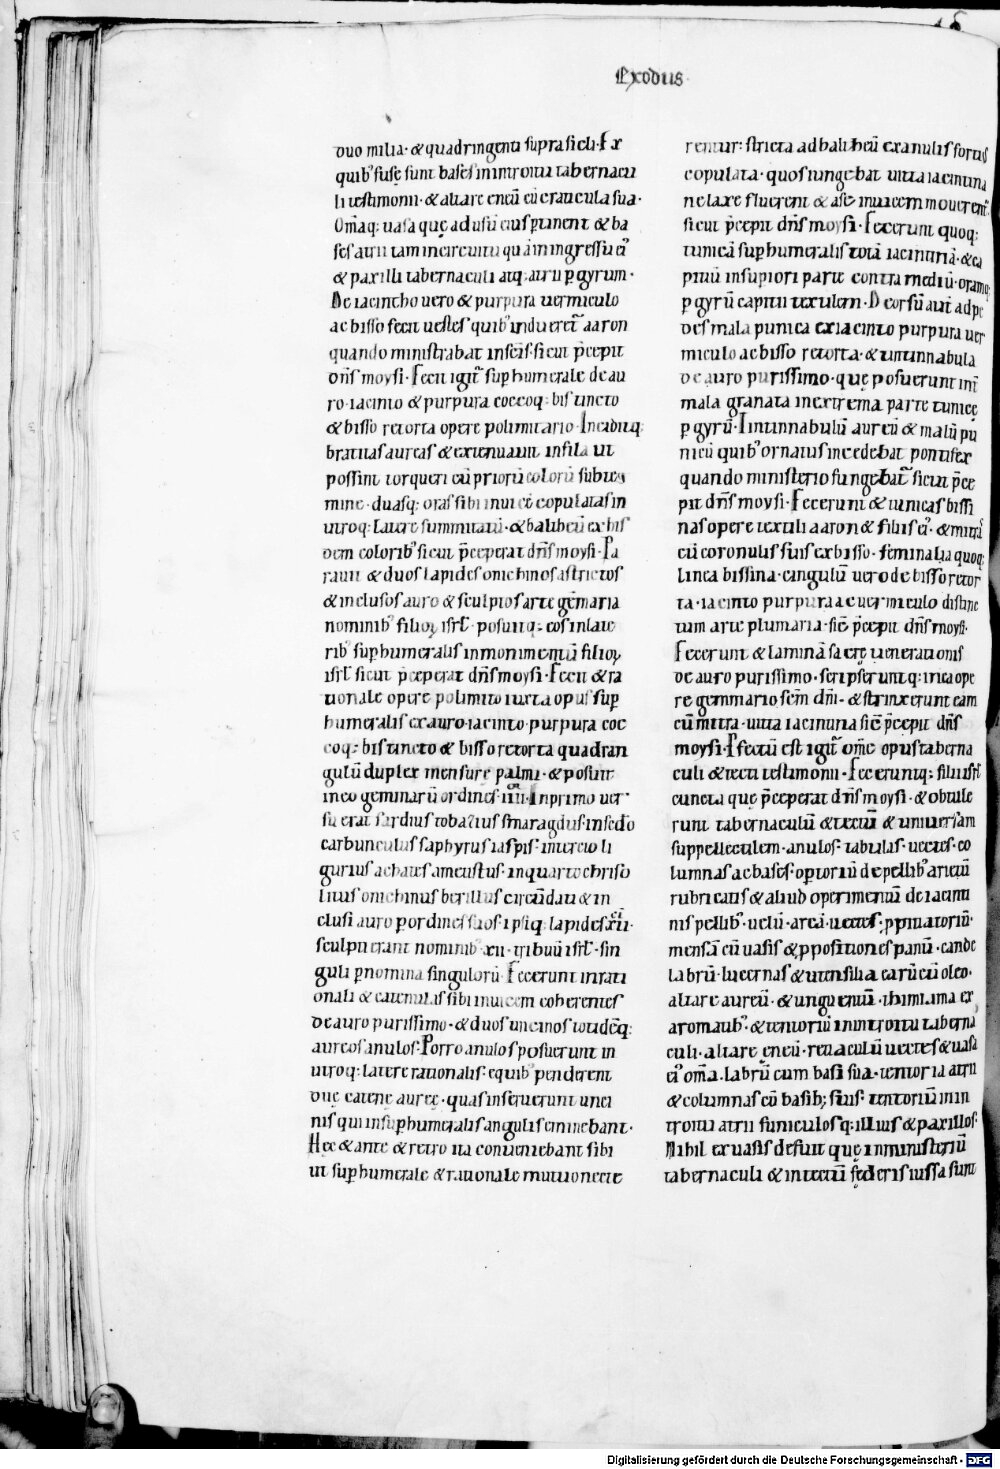 Exodus
duo milia · & quadringenti supra sicli · Ex
quib᷒ fusę sunt bases in introitu tabernacu
li testimonii · & altare eneũ cũ craticula sua ·
Om̃aq; uasa quę ad usũ eius ptinent & ba
ses atrii tam in circuitu quã in ingressu eĩ
& paxilli tabernaculi atq; atrii p gyrum ·
De iacincho uero & purpura uermiculo
ac bisso fecit uestes quib᷒ indueret̃ aaron
quando ministrabat in sc̃is · sicut p̃cepit
dñs moysi · Fecit igit̃ sup humerale de au
ro · iacinto & purpura coccoq; bis tincto
& bisso retorta opere polimitario · Inciditq;
bratias aureas & extenuauit in fila ut
possint torqueri cũ priorũ colorũ subteg
mine · duasq; oras sibi inuicẽ copulatas in
utroq; latere summitatũ · & baltheũ ex his
dem colorib᷒ sicut p̃ceperat dñs moysi · Pa
rauit & duos lapides onichinos astrictos
& inclusos auro & sculptos arte gẽmaria
nominib᷒ filioꝝ isrl̃ · posuitq; eos in late
rib᷒ sup humeralis in monimentũ filioꝝ
isrl̃ sicut p̃ceperat dñs moysi · Fecit & ra
tionale opere polimito iuxta opus sup
humeralis ex auro · iacinto · purpura coc
coq; bis tincto & bisso retorta quadran
gulũ duplex mensure palmi · & posuit
in eo geminarũ ordines · iiii · In primo uer
su erat sardius tobazius smaragdus · in sedo
carbunculus saphyrus iaspis · in tercio li
gurius achates ametistus · in quarto chriso
litus onichinus berillus circũdati & in
clusi auro p ordines suos · ipsiq; lapides xii ·
sculpti erant nominib᷒ · xii · tribuũ isrl̃ · sin
guli p nomina singulorũ · Fecerunt in rati
onali & catenulas sibi inuicem coherentes
de auro purissimo · & duos uncinos totidẽq;
aureos anulos · Porro anulos posuerunt in
utroq; latere rationalis · e quib᷒ penderent
duę catenę aureę · quas inseruerunt unci
nis qui in sup humeralis angulis eminebant ·
Hęc & ante & retro ita conueniebant sibi
ut sup humerale & rationale mutuo necte
rentur : stricta ad baltheũ & anulis fortius
copulata · quos iungebat uitta iacintina
ne laxe fluerent & a se inuicem mouerent̃
sicut p̃cepit dñs moysi · Fecerunt quoq;
tunicã sup humeralis totã iacintinã · & ca
pitiũ in supiori parte contra mediũ · oramq;
p gyrũ capitii textilem · Deorsũ aut̃ ad pe
des mala punica ex iacinto purpura uer
miculo ac bisso retorta · & tintinnabula
de auro purissimo · quę posuerunt int̃
mala granata in extrema parte tunicę
p gyrũ · Tintinnabulũ aureũ & malũ pu
nicũ quib᷒ ornatus incedebat pontifex
quando ministerio fungebat̃ sicut p̃ce
pit dñs moysi · Fecerunt & tunicas bissi
nas opere textili aaron & filiis eĩ · & mitrã
cũ coronulis suis ex bisso · feminalia quoq;
linea bissina · cingulũ uero de bisso retor
ta · iacinto purpura ac uermiculo distinc
tum arte plumaria · sic̃ p̃cepit dñs moysi ·
Fecerunt & laminã sacrę uenerationis
de auro purissimo · scripseruntq; in ea ope
re gemmario sc̃m dñi · & strinxerunt eam
cũ mitra · uitta iacintina sic̃ p̃cepit dñs
moysi · Pfectũ est igit̃ om̃e opus taberna
culi & tecti testimonii · Feceruntq; filii isrl̃
cuncta quę p̃ceperat dñs moysi · & obtule
runt tabernaculũ & tectũ & uniuersam
suppellectilem · anulos · tabulas · uectes · co
lumnas ac bases · optoriũ de pellib᷒ arietũ
rubricatis & aliud operimentũ de iacinti
nis pellib᷒ · uelũ · arcã · uectes · ppitiatoriũ ·
mensã cũ uasis & ppositionis panũ · cande
labrũ · lucernas & utensilia earũ cũ oleo ·
altare aureũ · & unguentũ · thimiama ex
aromatib᷒ · & tentoriũ in introitu taberna
culi · altare ęneũ · retiaculũ uectes & uasa
eĩ om̃a · labrũ cum basi sua · tentoria atrii
& columnas cũ basib; suis · tentoriũ in in
troitu atrii funiculosq; illius & paxillos ·
Nihil ex uasis defuit quę in ministeriũ
tabernaculi & in tectũ fęderis iussa sunt
Digitalisierung gefördert durch die Deutsche Forschungsgemeinschaft - DFG